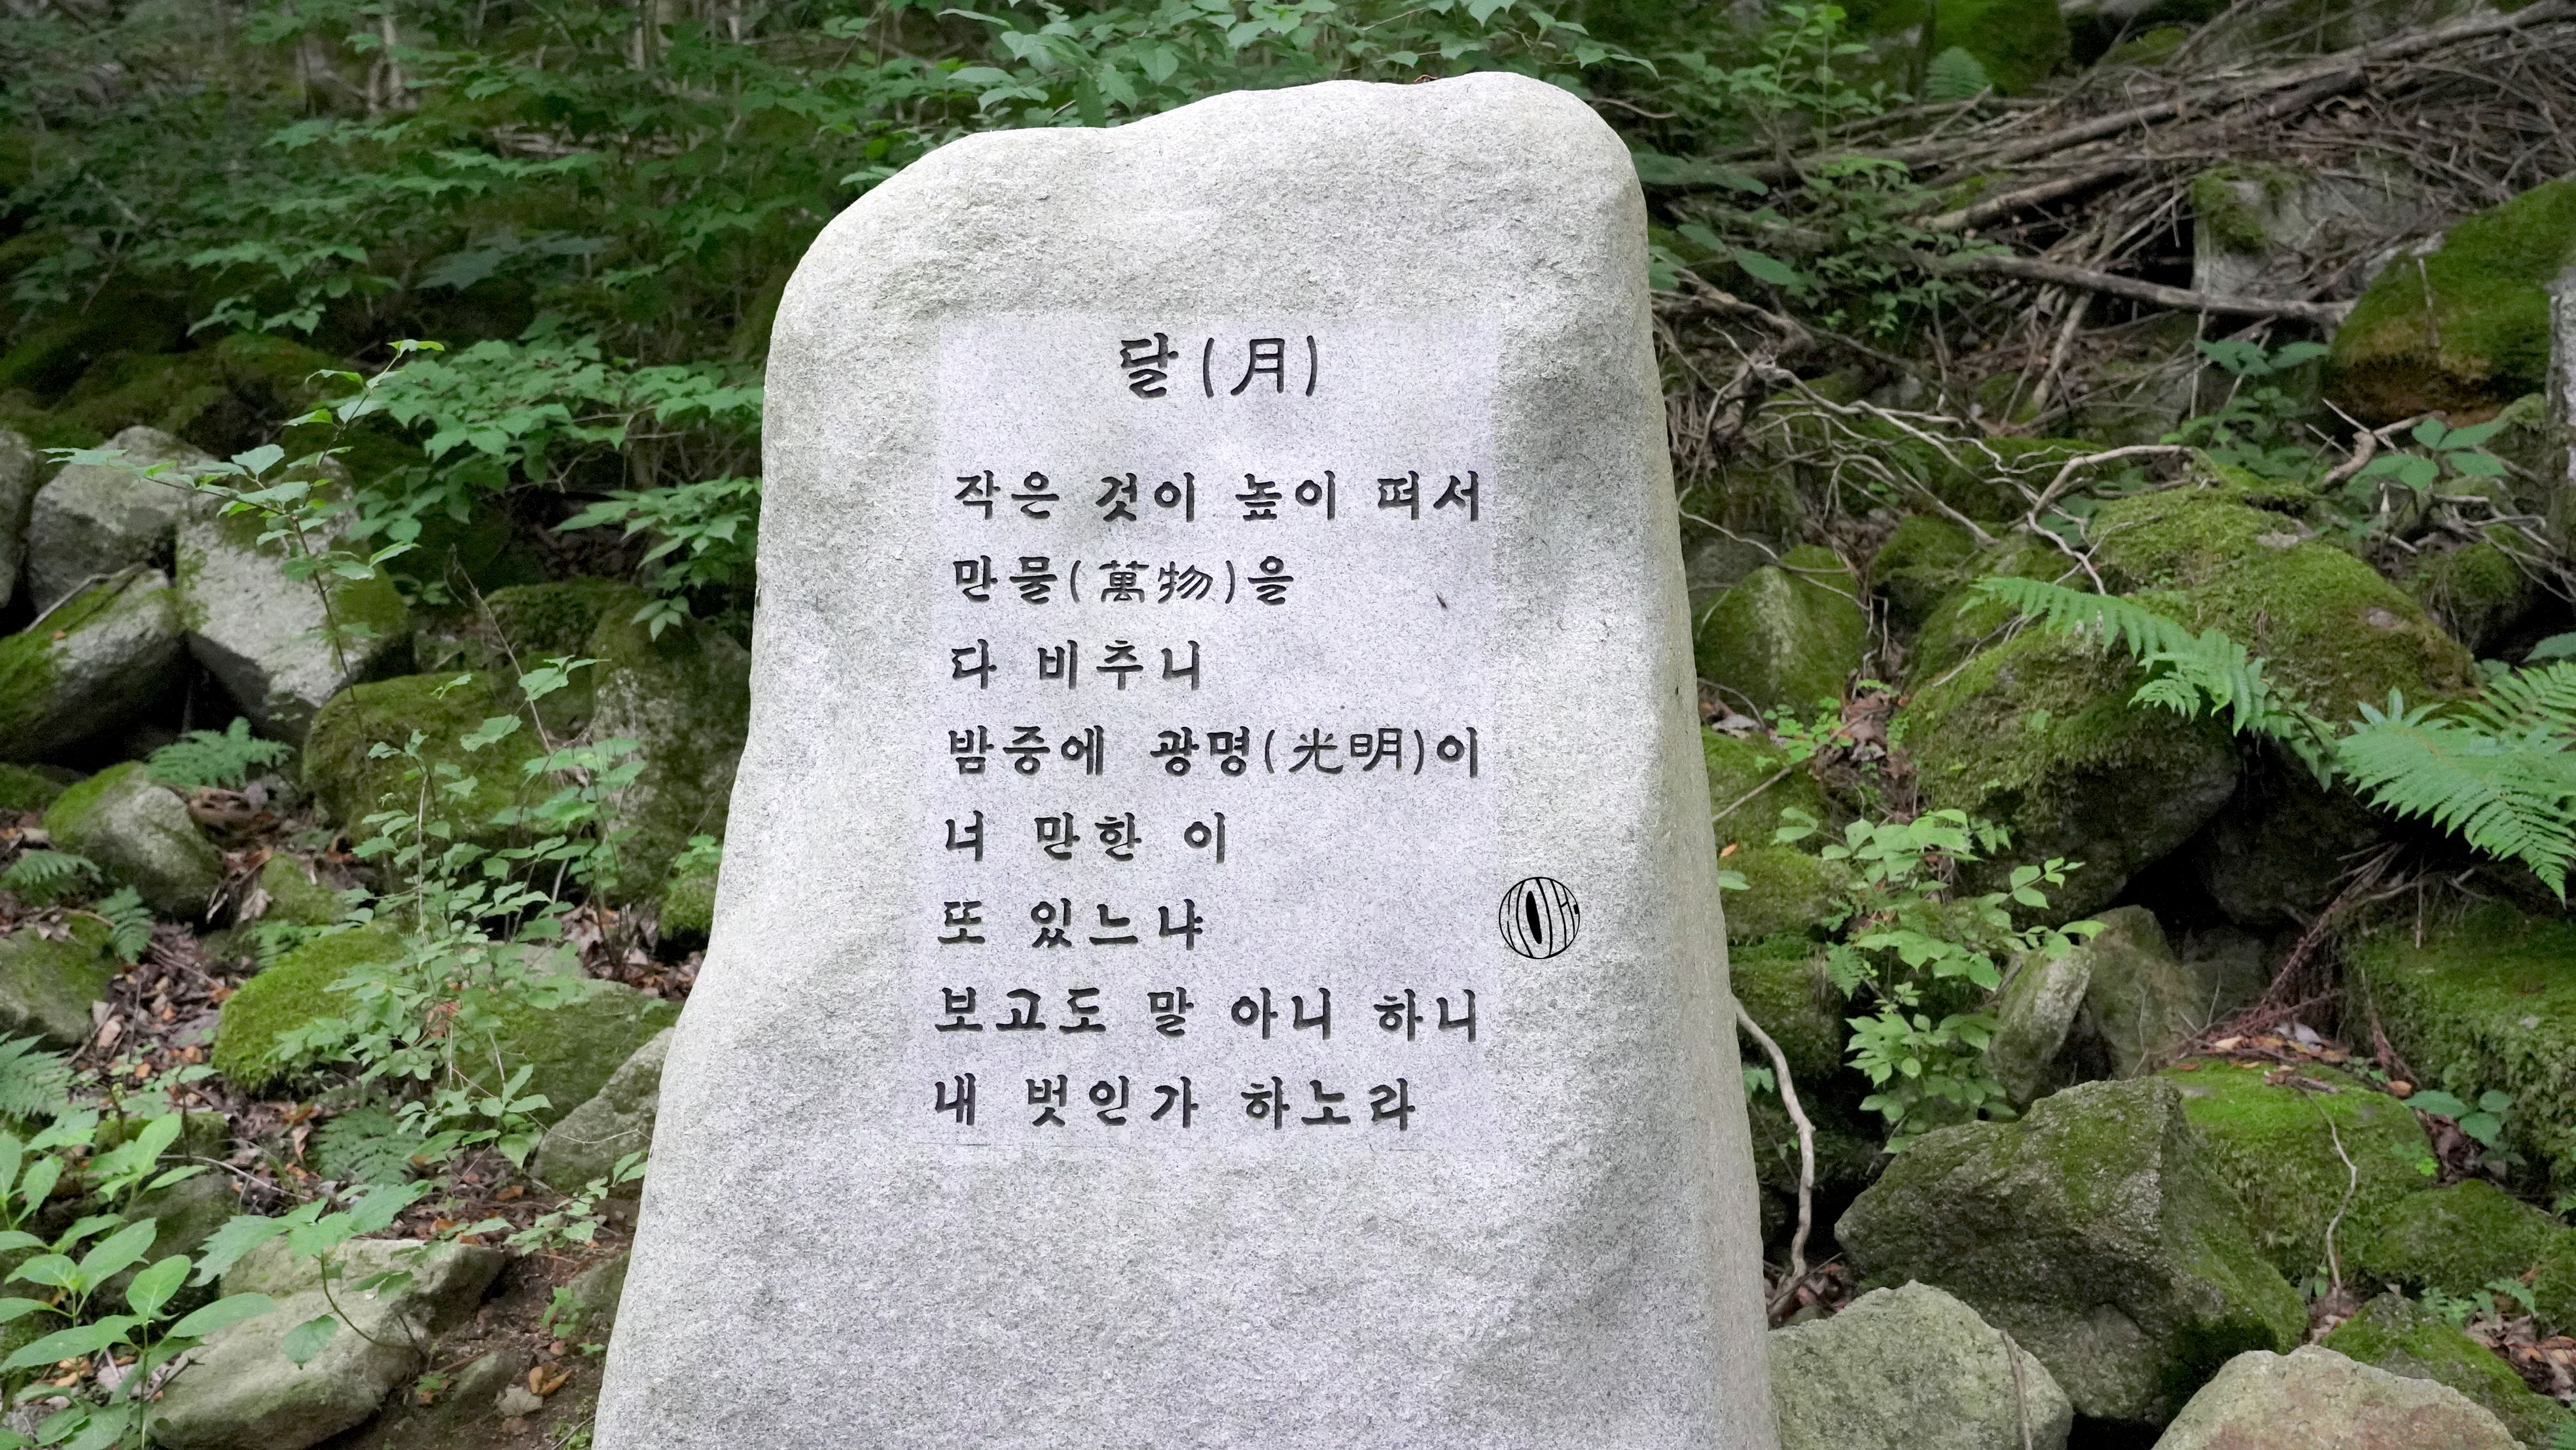 달(月)
작은 것이 높이 떠서
만물(萬物)을
다 비추니
밤중에 광명(光明)이
너 만한 이
또 있느냐
보고도 말 아니 하니
내 벗인가 하노라